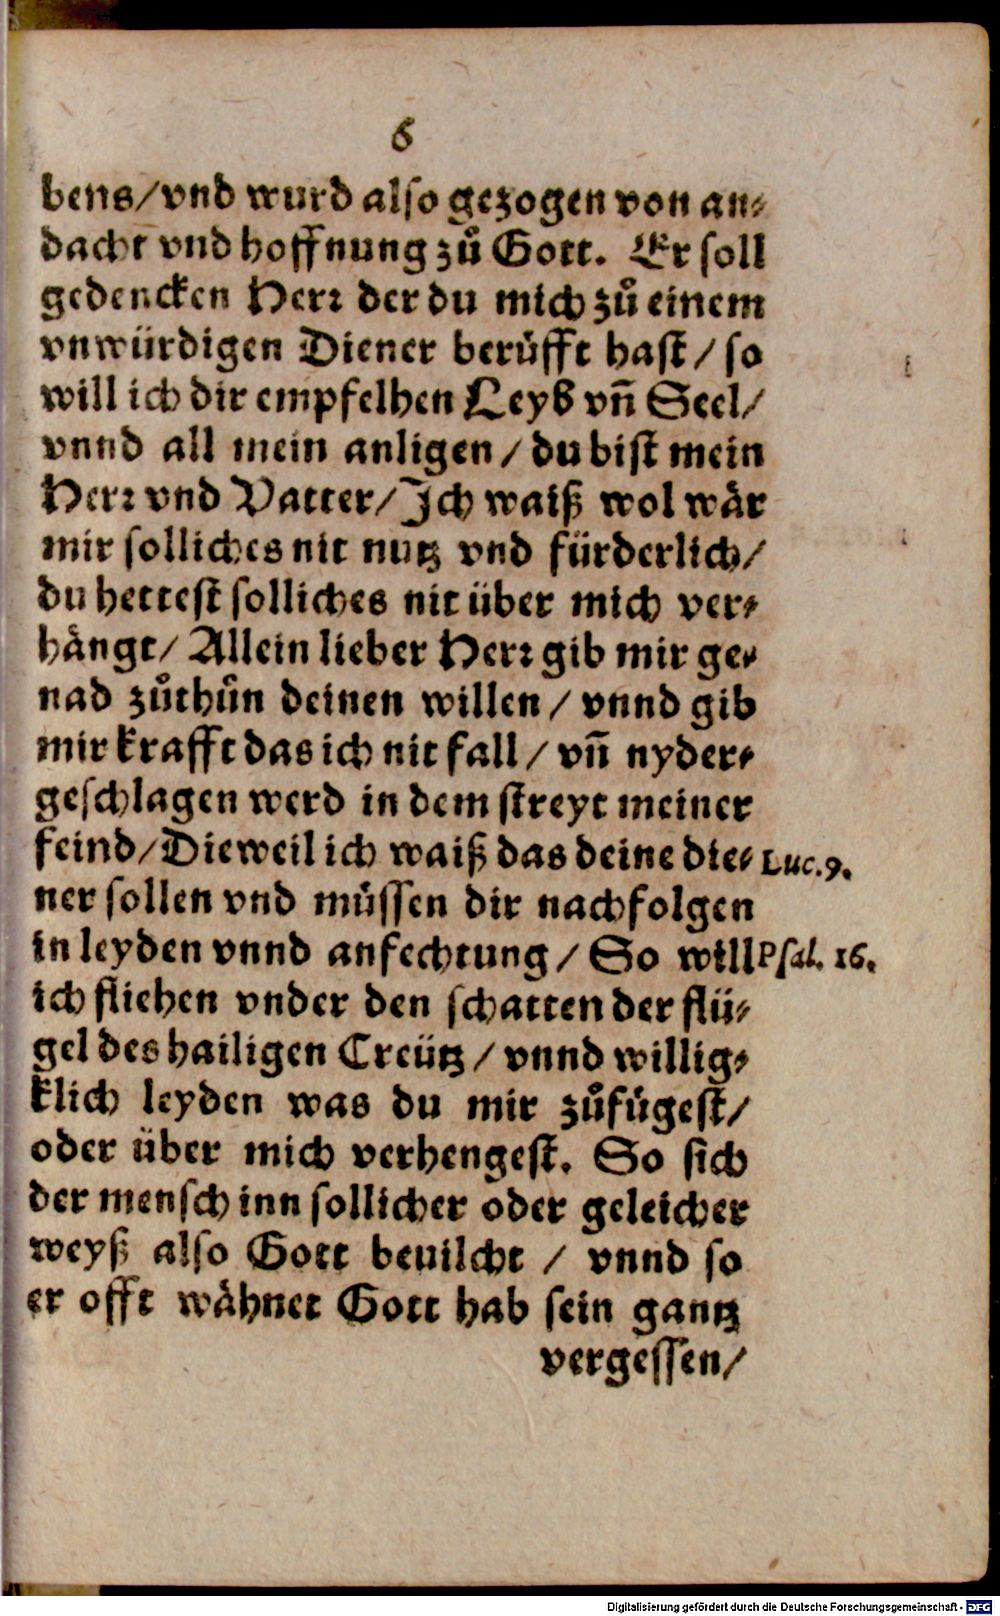 6
bens/vnd wurd also gezogen von an⸗
dacht vnd hoffnung zuͦ Gott. Er soll
gedencken Herꝛ der du mich zuͦ einem
vnwürdigen Diener beruͤfft hast/ so
will ich dir empfelhen Leyb vñ Seel/
vnnd all mein anligen/ du bist mein
Herꝛ vnd Vatter/ Ich waiß wol waͤr
mir solliches nit nutz vnd fürderlich/
du hettest solliches nit über mich ver⸗
haͤngt/ Allein lieber Herꝛ gib mir ge⸗
nad zuͦthuͦn deinen willen/ vnnd gib
mir krafft das ich nit fall/ vñ nyder⸗
geschlagen werd in dem streyt meiner
feind/Dieweil ich waiß das deine die⸗ Luc.9.
ner sollen vnd muͤssen dir nachfolgen
in leyden vnnd anfechtung/ So will Psal. 16.
ich fliehen vnder den schatten der flü⸗
gel des hailigen Creütz/ vnnd willig⸗
klich leyden was du mir zuͦfuͤgest/
oder über mich verhengest. So sich
der mensch inn sollicher oder geleicher
weyß also Gott beuilcht / vnnd so
er offt waͤhnet Gott hab sein gantz
vergessen/
Digitalisierung gefördert durch die Deutsche Forschungsgemeinschaft - DFG